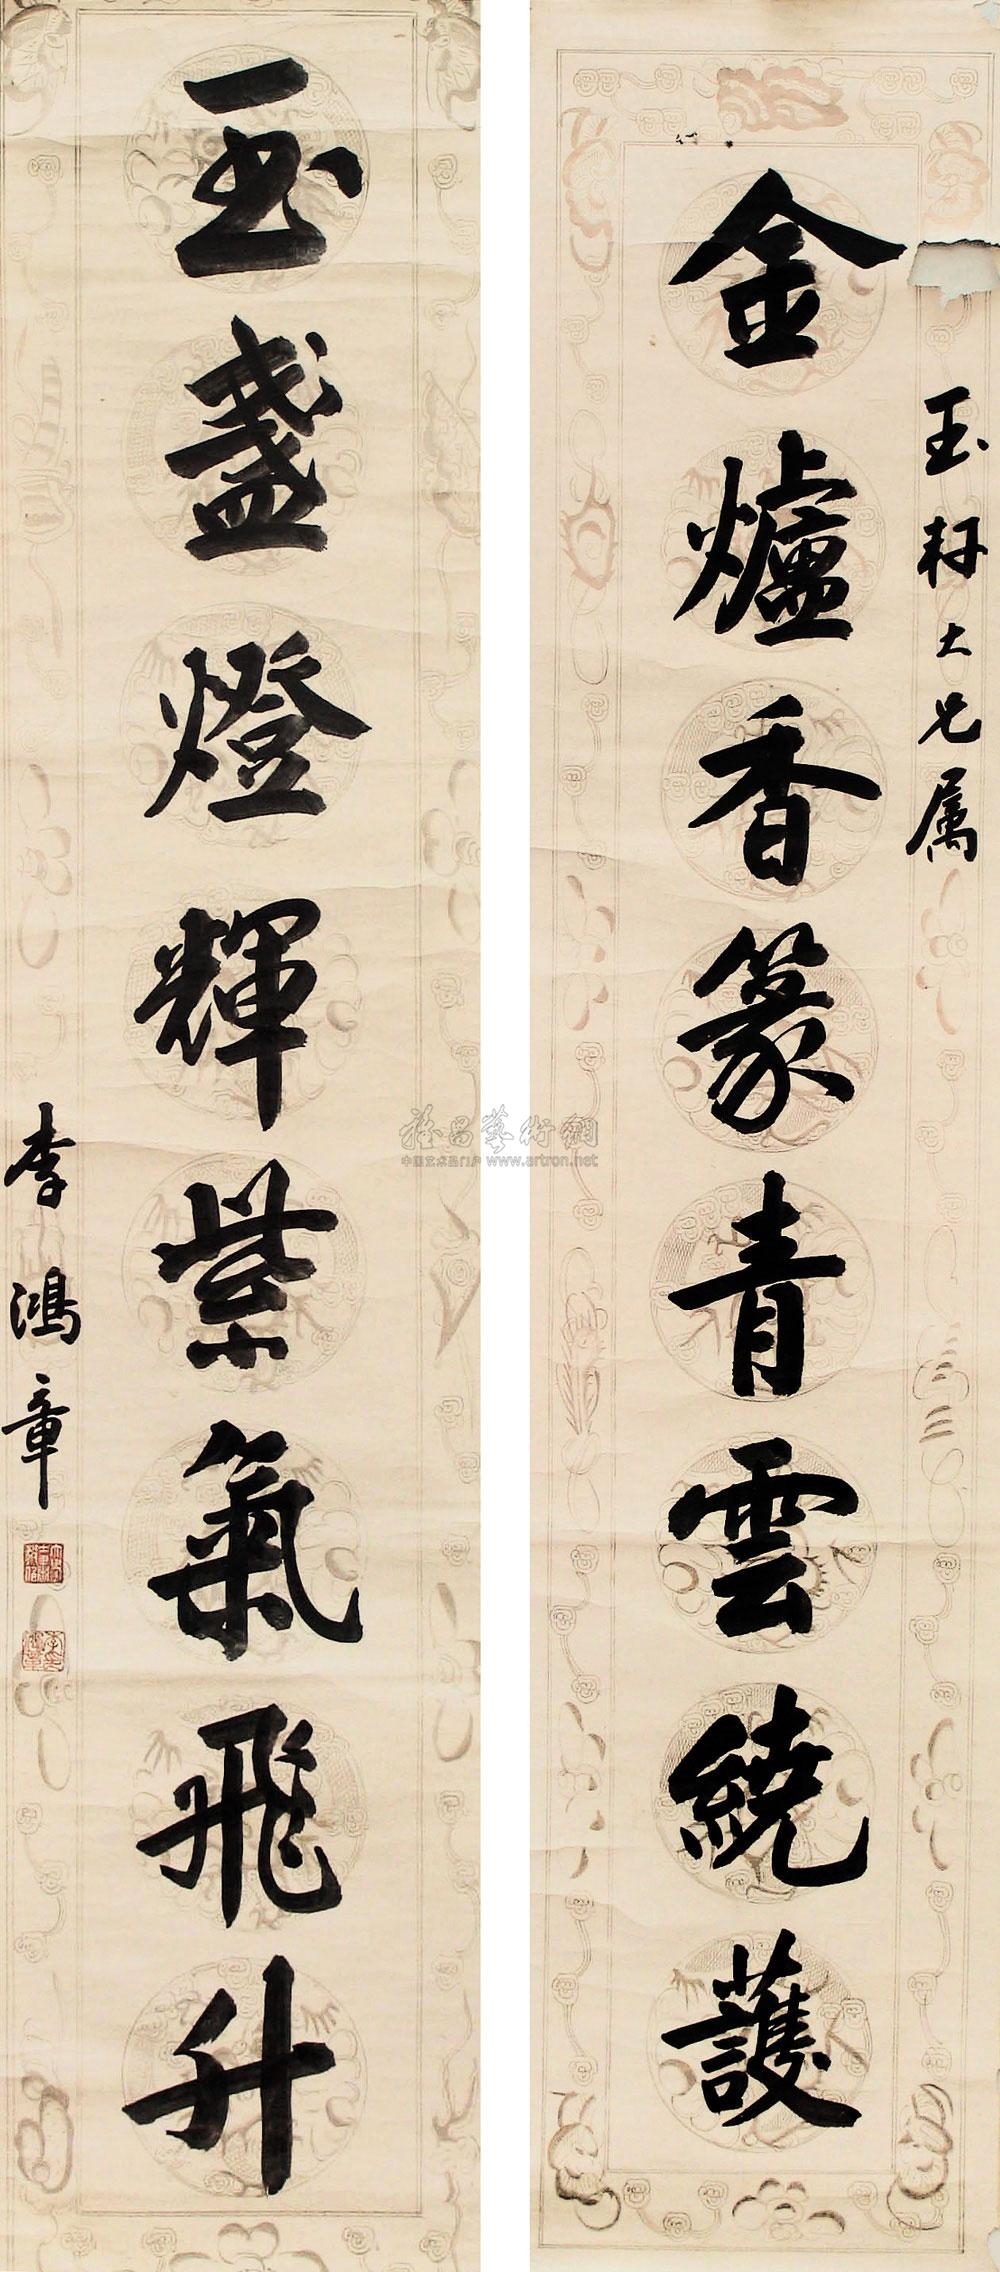 金爐香篆青雲繞護
玉籽大兄属
玉盞燈輝紫氣飛升
李鴻章
雅昌藝術網
中国艺术品门户 www.artron.net